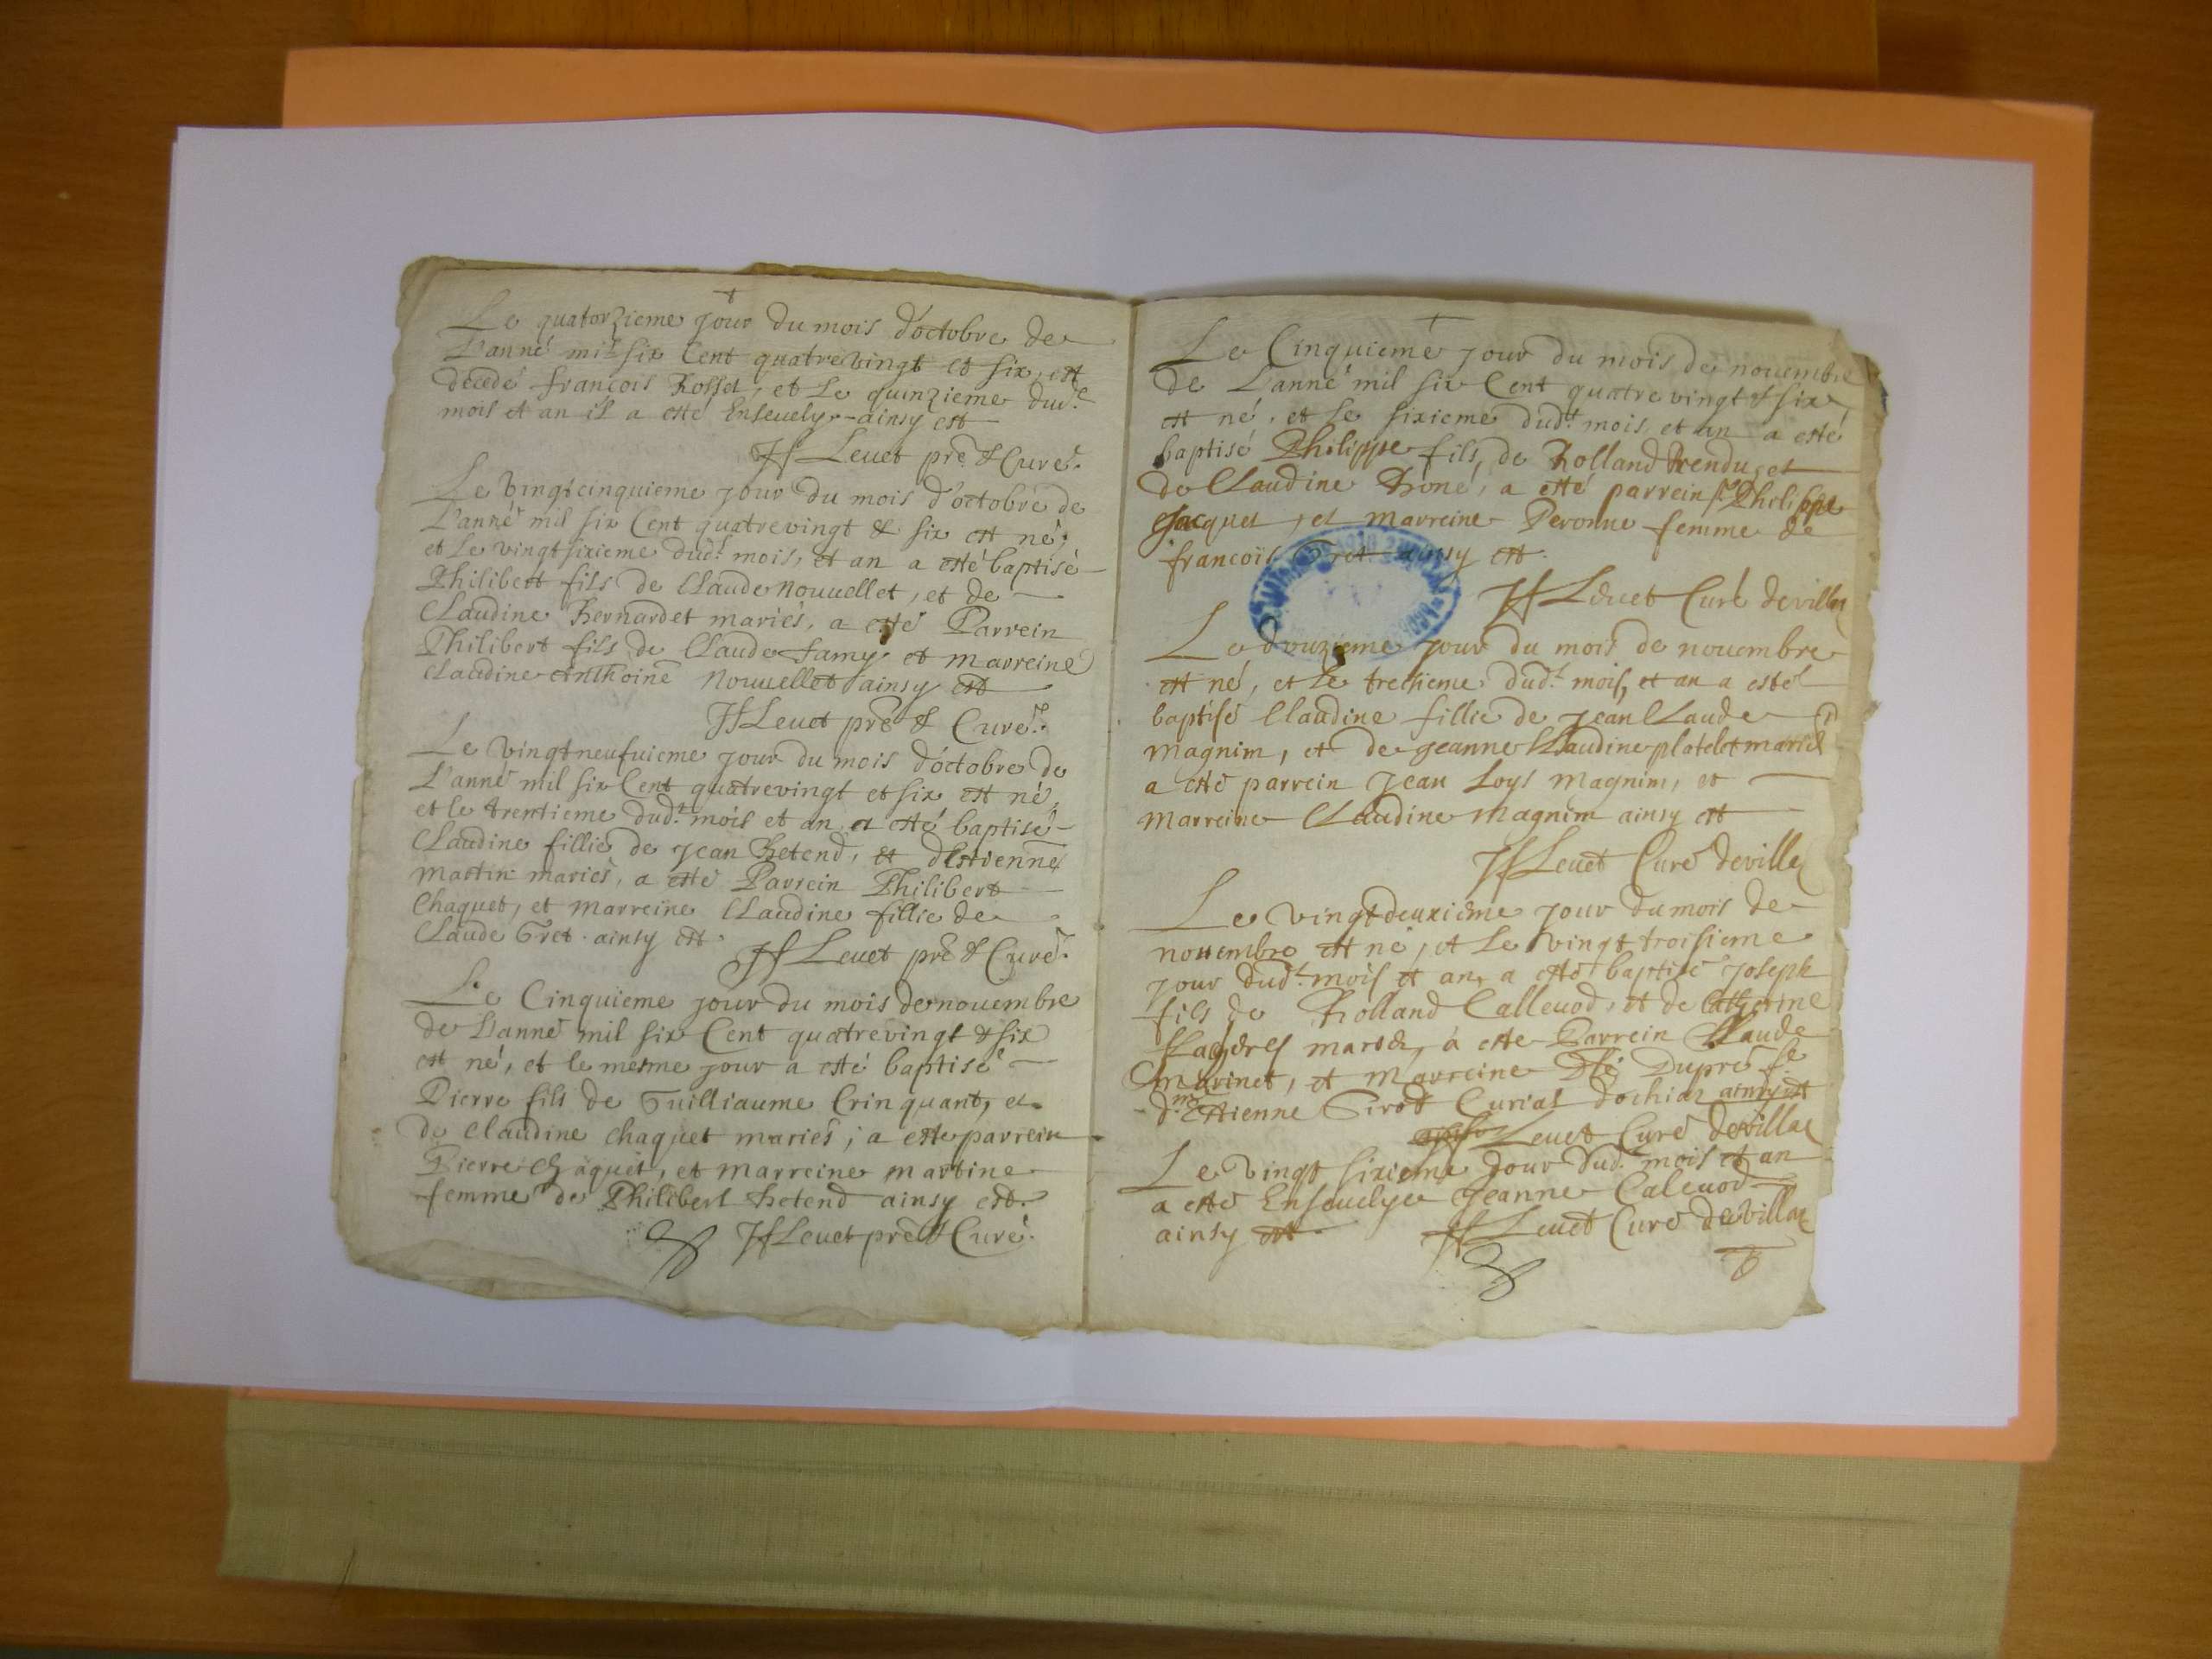 Le quatorzieme jour du mois d'octobre de
L'anné mil six Cent quatrevingt et six, est
decedé françois Rosset, et Le quinzieme dud.e
mois et an il a esté Ensevely - ainsy est
Levet pre & Curé.
Le vingtcinquieme jour du mois d'octobre de
L'anné mil six Cent quatrevingt & six est né,
et Le vingtsixieme dud.t mois, et an a esté baptisé
Philibert fils de Claude Nouuellet, et de
Claudine Bernardet mariés, a esté Parrein
Philibert fils de Claude famy et marreine
Claudine Anthoine Nouuellet ainsy est
Levet pre & Curé.
Le vingtneufuieme jour du mois d'octobre de
L'anné mil six Cent quatrevingt et six est né,
et le trentieme dud.t mois et an a esté baptisé
Claudine fillie de Jean Betend, et d'Estienne
martin mariés, a esté Parrein Philibert
Chaquet, et marreine Claudine fillie de
Claude Tret ainsy est
Levet pre & Curé.
Le Cinquieme jour du mois de nouembre
de L'anné mil six Cent quatrevingt & six
est né, et le mesme jour a esté baptisé
Pierre fils de Guilliaume Crinquant, et
de Claudine Chaquet mariés, a esté parrein
Pierre Chaquet, et marreine martine
femme de Philibert Betend ainsy est.
Levet pre & Curé.
Le Cinquieme jour du mois de nouembre
de L'anné mil six Cent quatre vingt & six,
est né, et le sixieme dud.t mois et an a esté
baptisé Philippe fils de Rolland Rendu, et
de Claudine a esté parrein Philippe
Jacquet, et marreine Peronne femme de
francois Tret ainsy est
Levet Curé de villes
Le douzieme jour du mois de nouembre
est né, et le tresieme dud.t mois, et an a esté
baptisé Claudine fillie de Jean Claude
magnim, et de Jeanne Claudine platelet mariés
a esté parrein Jean Loys magnim, et
marreine Claudine magnim ainsy est
Levet Curé de villes
Le vingtdeuxiéme jour du mois de
nouembre est né, et Le vingt troisieme
jour dud.t mois et an, a esté baptisé Joseph
fils de Rolland Calleuod, et de Catherine
mariés, a esté Parrein Claude
marinet, et marreine Dupré
Estienne Girod Curial ainsy est
Levet Curé de villes
Le vingt sixieme jour dud.t mois et an
a esté Ensevelye Jeanne Caleuod
ainsy est Levet Curé de villes